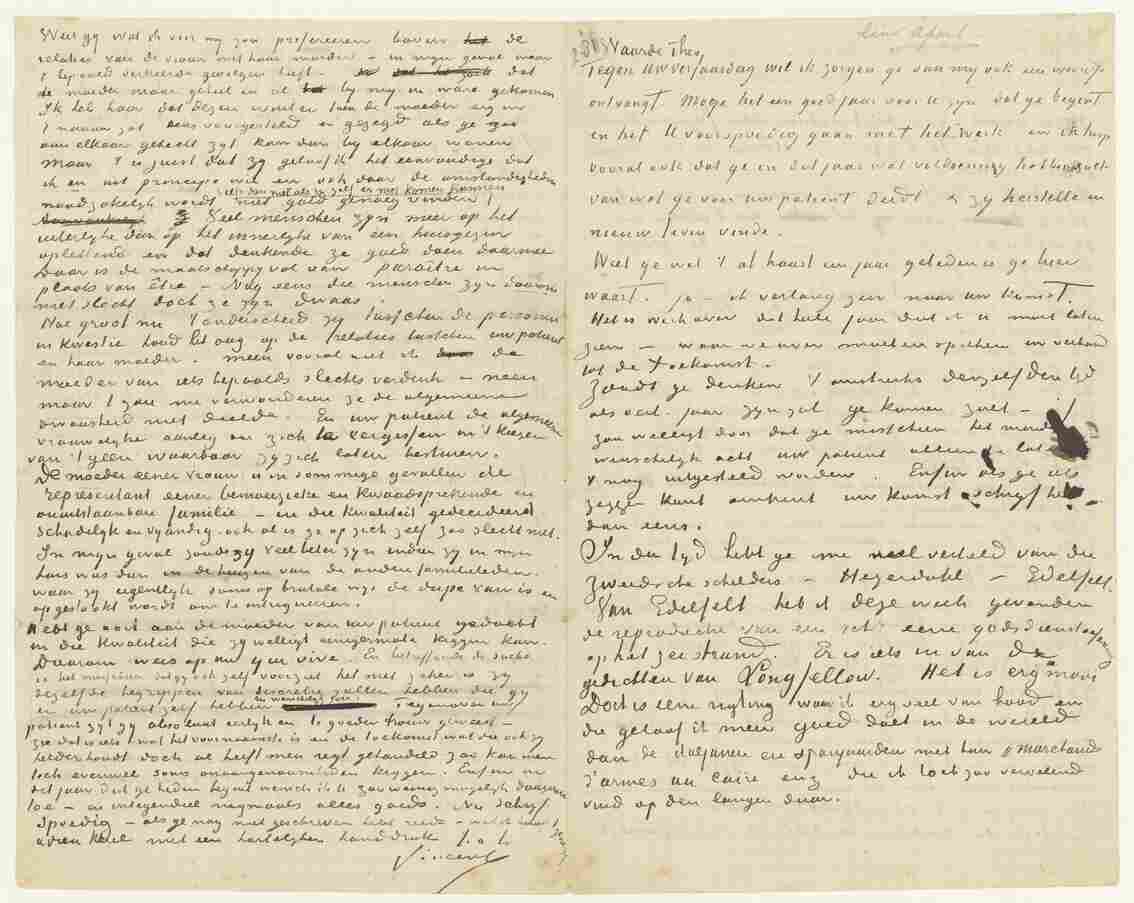 Weet gij wat ik voor mij zou prefereeren boven de
relaties van de vrouw met haar moeder – in mijn geval waar
't bepaald verkeerde gevolgen heeft – dat
de moeder maar geheel en al bij mij in ware gekomen
Ik heb haar dat dezen winter toen de moeder erg er
't naauw zat eens voorgesteld en gezegd als ge zoo
aan elkaar gehecht zijt kom dan bij elkaar wonen
maar 't is juist dat zij geloof ik het eenvoudige dat
ik en uit principe wil en ook door de omstandigheden
noodzakelijk wordt niet goed genoeg vinden
zelfs dan niet als zij zelf er mee komen kunnen
Veel menschen zijn meer op het
uiterlijke dan op het innerlijke van een huisgezin
oplettend en dat denkende ze goed doen daarmee
Daar is de maatschappij vol van paraître in
plaats van être – Nog eens die menschen zijn daarom
niet slecht doch ze zijn dwaas.
Hoe groot nu 't onderscheid zij tusschen de personen
in kwestie houd het oog op de relaties tusschen uw patient
en haar moeder. meen vooral niet ik de
moeder van iets bepaalds slechts verdenk – neen
maar 't zou me verwonderen ze de algemeene
dwaasheid niet deelde. En uw patient de algemeen
vrouwelijke aanleg om zich te vergissen in 't kiezen
van 't geen waarbaar zij zich laten besturen.
De moeder eener vrouw is in sommige gevallen de
representant eener bemoeizieke en kwaadsprekende en
onuitstaanbare familie – in die kwaliteit gedecideerd
schadelijk en vijandig. ook al is ze op zich zelf zoo slecht niet.
In mijn geval zoude zij veel beter zijn indien zij in mijn
huis was dan in de huizen van de andere familieleden.
waar zij eigentlijk soms op brutale wijs de dupe van is en
opgestookt wordt om te intrigueeren.
Hebt ge ooit aan de moeder van uw patient gedacht
in die kwaliteit die zij wellicht eenigermate krijgen kan.
Daarom wees op uw qui vive. En betreffende de zaak
dezelfde begrippen van discretie zullen hebben die gij
en uw patient zelf hebben Tegenover uw
patient zijt gij absoluut eerlijk en te goeder trouw geweest –
zie dat is iets & wel het voornaamste is en de toekomst wat die ook zij
helder houdt doch al heeft men regt gehandeld zoo kan men
toch evenwel soms onaangenaamheden krijgen. Enfin in
dit jaar dat ge heden begint wensch ik U zoo weinig mogelijk daarvan
toe – en integendeel nogmaals alles goeds. Nu schrijf
spoedig – als ge nog niet geschreven hebt reeds –
adieu kerel met een hartelijken handdruk t. à t.
Vincent
Waarde Theo,
Tegen Uw verjaardag wil ik zorgen ge van mij ook een woordje
ontvangt. Moge het een goed jaar voor U zijn dat ge begint
en het U voorspoedig gaan met het werk en ik hoop
vooral ook dat ge in dit jaar wel voldoening hebben zult
van wat ge voor uw patient deedt & zij herstelle en
nieuw leven vinde.
Weet ge wel 't al haast een jaar geleden is ge hier
waart. Ja – ik verlang zeer naar uw komst.
Het is werk over dat heele jaar dat ik U moet laten
zien – waar we over moeten spreken in verband
tot de toekomst.
Zoudt ge denken 't omstreeks denzelfden tijd
als verl. jaar zijn zal ge komen zult –
zou wellicht door dat ge misschien het minder
wenschelijk acht uw patient alleen te laten
't nog uitgesteld worden. Enfin als ge iets
zeggen kunt omtrent uw komst schrijf het
dan eens.
In der tijd hebt ge me veel verteld van die
Zweedsche schilders – Heyerdahl – Edelfelt.
Van Edelfelt heb ik deze week gevonden
de reproductie van een schij eene godsdienstoefening
op het zeestrand. Er is iets in van de
gedichten van Longfellow. Het is erg mooi
Dat is eene rigting waar ik erg veel van houd en
die geloof ik meer goed doet in de wereld
dan de italjanen en spanjaarden met hun "marchands
d'armes au Caire enz die ik toch zoo vervelend
vind op den langen duur.